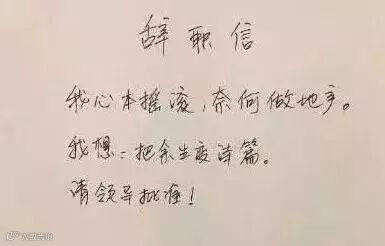 辞职信
我心本摇滚，奈何做地产。
我想：把余生变诗篇。
请领导批准！